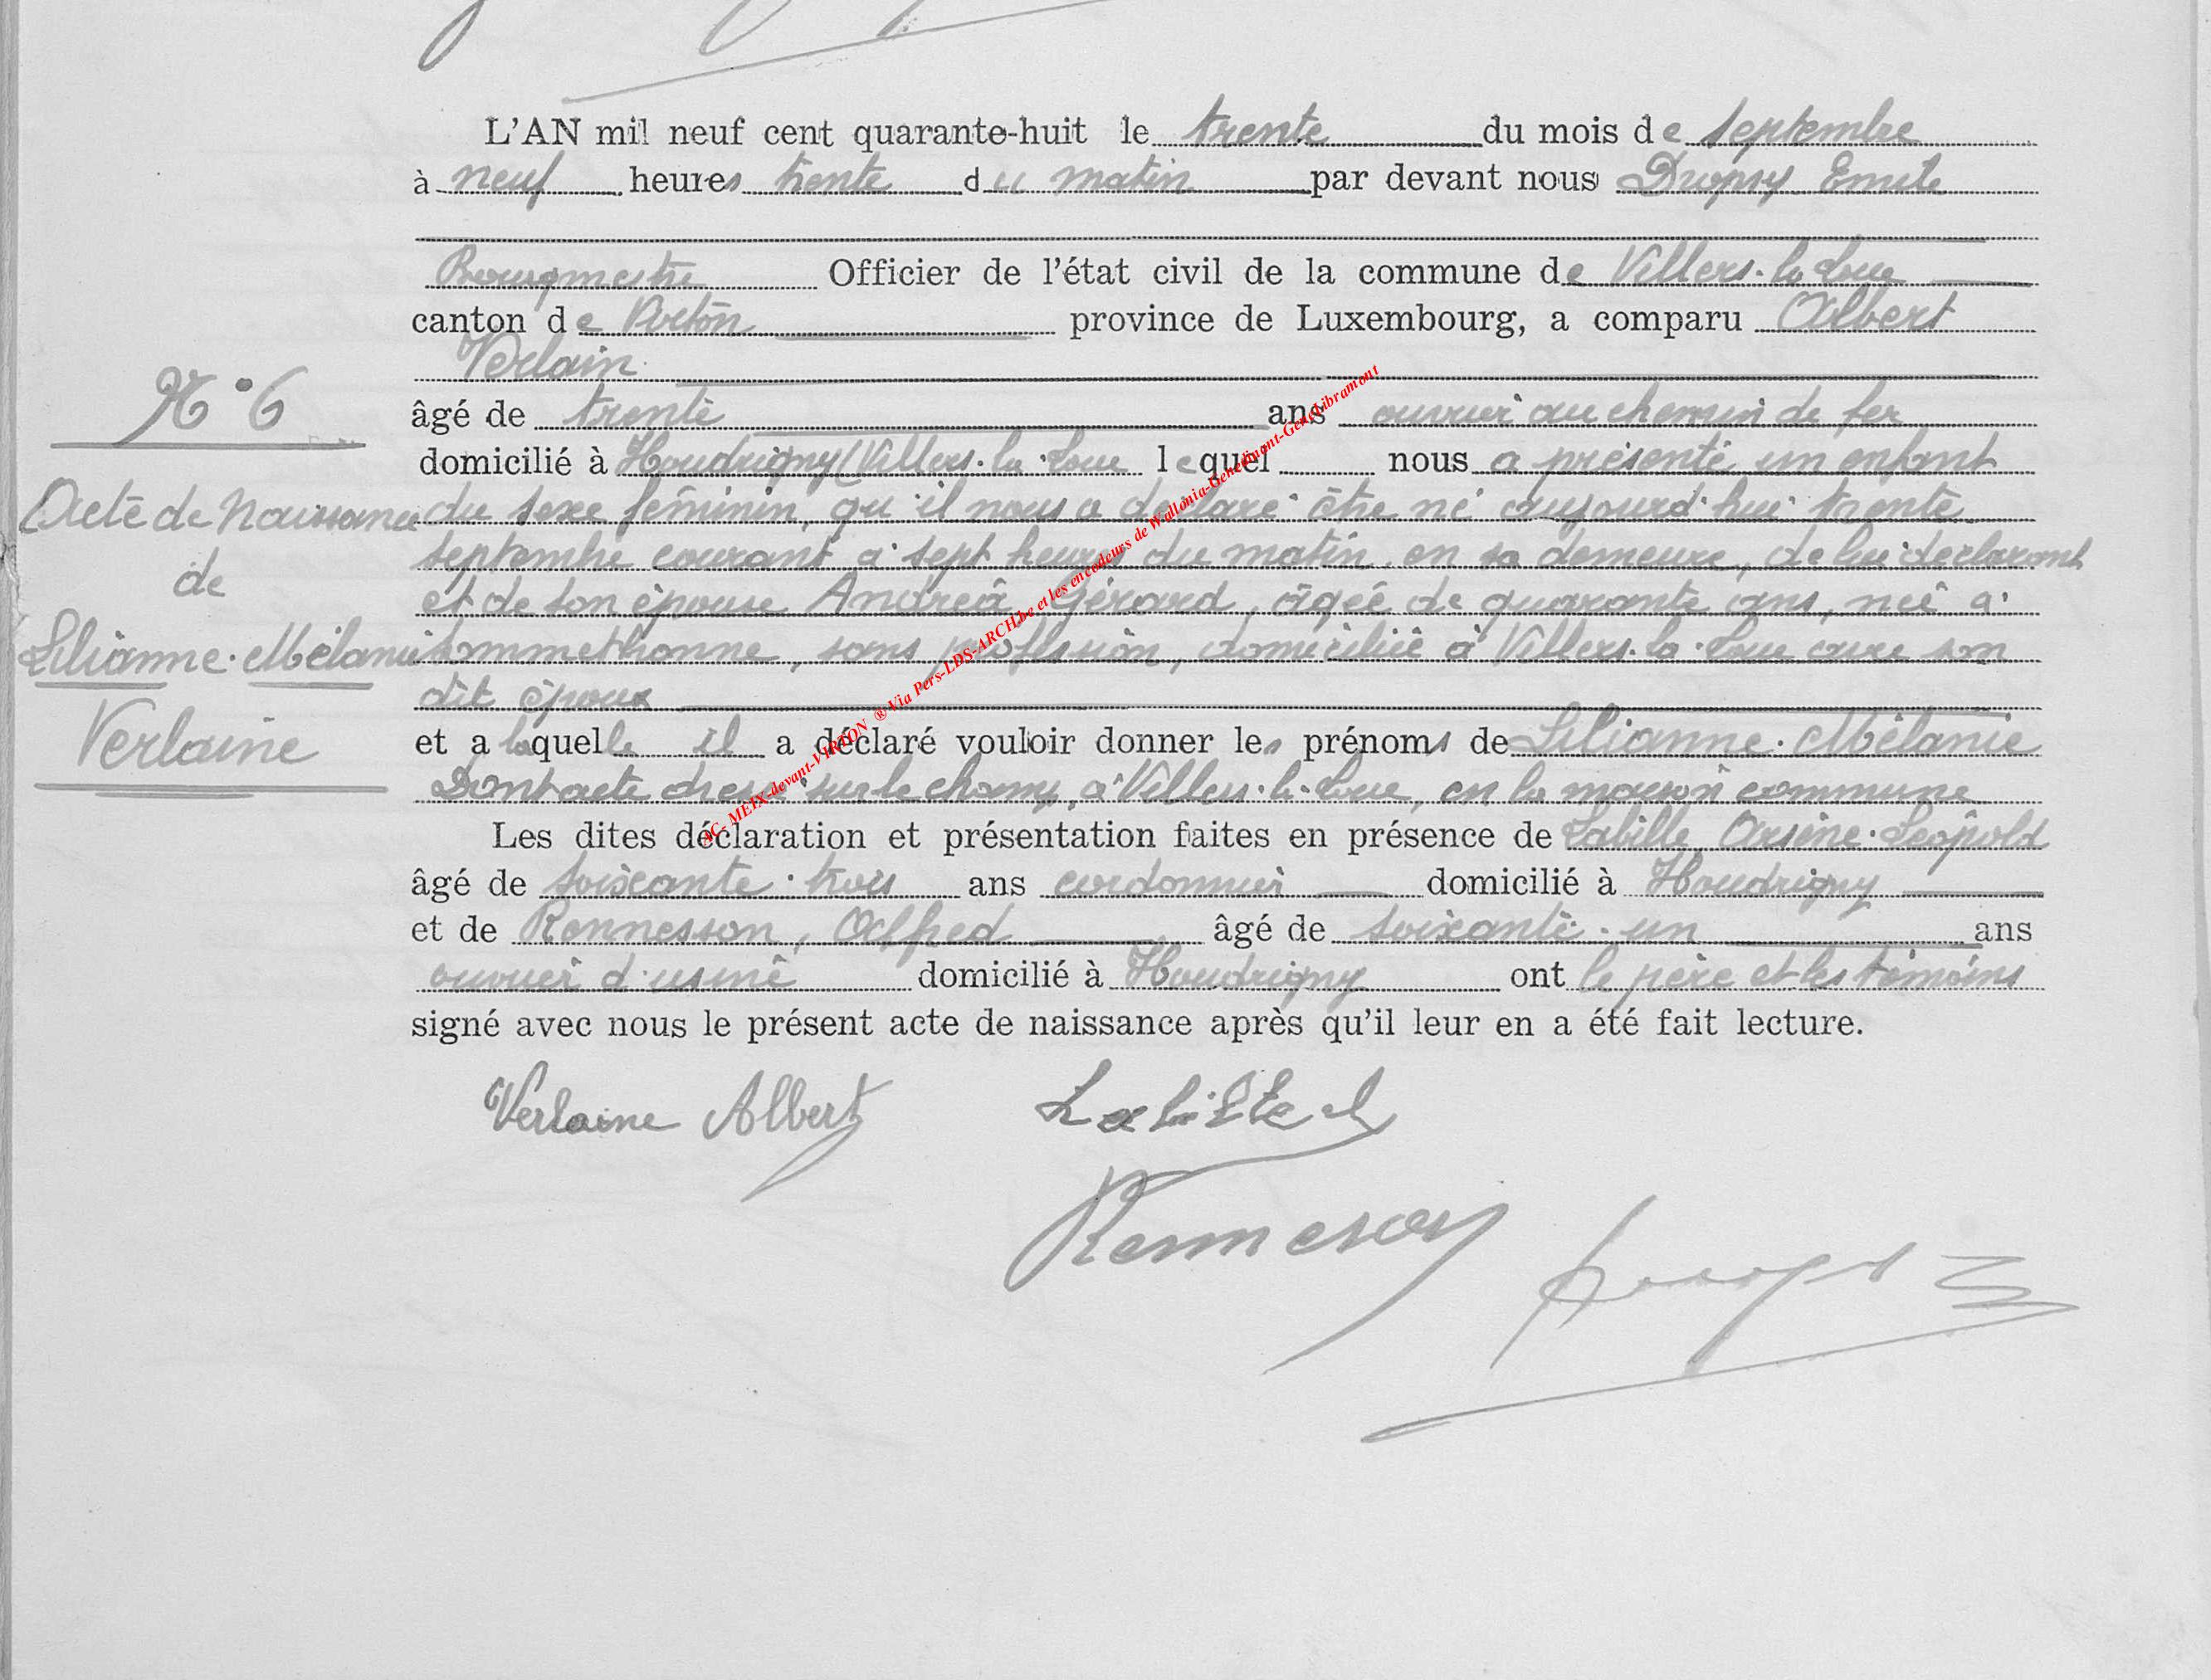 L'AN mil neuf cent quarante-huit le trente du mois de septembre
à neuf heures trente du matin par devant nous Dropsy Emile
Bourgmestre Officier de l'état civil de la commune de Villers-la-Loue
canton de Virton province de Luxembourg, a comparu Albert
Verlain
N° 6
âgé de trente ans ouvrier au chemin de fer
domicilié à Houdrigny (Villers-la-Loue lequel nous a présenté un enfant
Acte de Naissance
du sexe féminin, qu'il nous a déclaré être né aujourd'hui trente
septembre courant à sept heures du matin en sa demeure, de lui déclarant
de
et de son épouse Andréa Gérard, âgée de quarante ans, née à
Lilianne-Mélanie
Sommethonne, sans profession, domiciliée à Villers-la-Loue avec son
dit époux
Verlaine
et a laquelle il a déclaré vouloir donner les prénoms de Lilianne-Mélanie
Dont acte dressé sur le champ, à Villers-la-Loue, en la maison commune
Les dites déclaration et présentation faites en présence de Labille, Arsène-Léopold
âgé de soixante-trois ans cordonnier domicilié à Houdrigny
et de Rennesson, Alfred âgé de soixante-un ans
ouvrier d'usine domicilié à Houdrigny ont le père et les témoins
signé avec nous le présent acte de naissance après qu'il leur en a été fait lecture.
Verlaine Albert Labille
Rennesson Dropsy
AC- MEIX-devant-VIRTON ® Via Pers-LDS-ARCH.be et les encodeurs de Wallonia-Genedinant-GeneLibramont